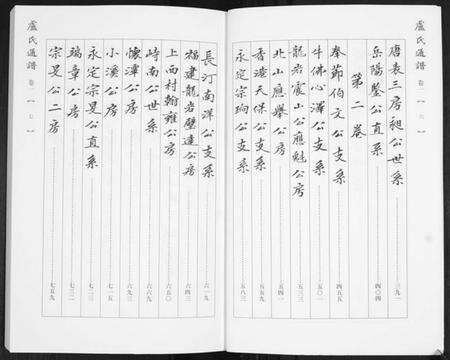 盧氏通譜 卷一
唐表三房昶公世系 三九一
岳陽鑒公直系 四〇四
第二卷
奉節伯文公支系 四五五
牛佛心潭公支系 五〇一
龍岩震山公應魁公房 五三三
北山應舉公房 五四一
香凌天保公支系 五五九
永定宗珣公支系 五八三
盧氏通譜 卷一
長汀南洋公支系 六一九
福建龍岩壁達公房 六四三
上西村翰雍公房 六五〇
崎南公世系 六六九
懷潭公房 六九三
小溪公房 七一五
永定宗旻公直系 七二三
瑞章公房 七三二
宗旻公二房 七五九